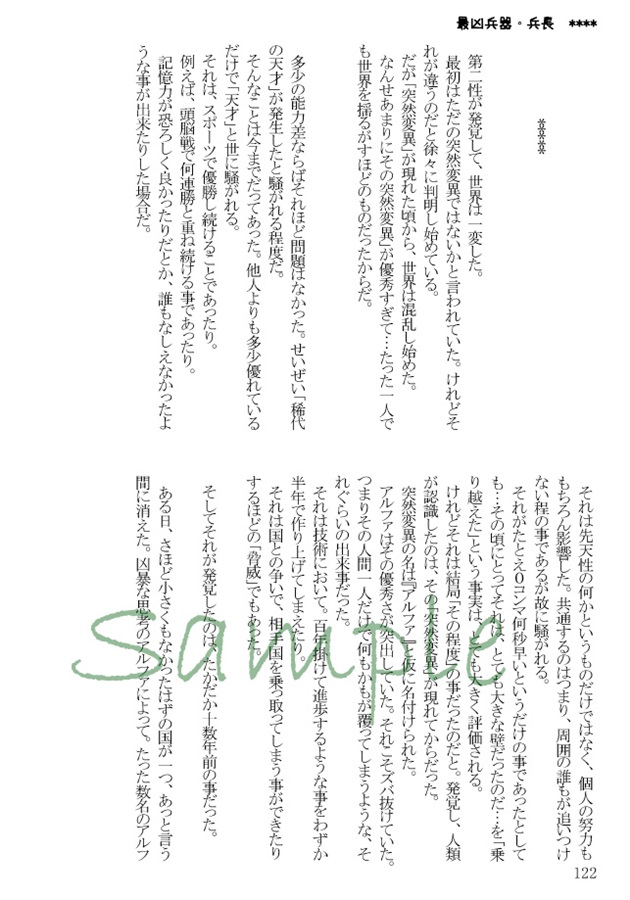 最凶兵器・兵長　****
****
第二性が発覚して、世界は一変した。
最初はただの突然変異ではないかと言われていた。けれどそ
れが違うのだと徐々に判明し始めている。
だが「突然変異」が現れた頃から、世界は混乱し始めた。
なんせあまりにその突然変異」が優秀すぎて…たった一人で
も世界を揺るがすほどのものだったからだ。
多少の能力差ならばそれほど問題はなかった。せいぜい「稀代
の天才」が発生したと騒がれる程度だ。
そんなことは今までだってあった。他人よりも多少優れている
だけで「天才」と世に騒がれる。
それは、スポーツで優勝し続けることであったり。
例えば、頭脳戦で何連勝と重ね続ける事であったり。
記憶力が恐ろしく良かったりだとか、誰もなしえなかったよ
うな事が出来たりした場合だ。
それは先天性の何かというものだけではなく、個人の努力も
もちろん影響した。共通するのはつまり、周囲の誰もが追いつけ
ない程の事であるが故に騒がれる。
それがたとえ０コンマ何秒早いというだけの事であったとして
も…その頃にとってそれは、とても大きな壁だったのだ…を「乗
り越えた」という事実は、とても大きく評価される。
けれどそれは結局「その程度」の事だったのだと。発覚し、人類
が認識したのは、その「突然変異」が現れてからだった。
突然変異の名は『アルファ』と仮に名付けられた。
アルファはその優秀さが突出していた。それこそズバ抜けていた。
つまりその人間一人だけで何もかもが覆ってしまうような、そ
れぐらいの出来事だった。
それは技術において。百年掛けて進歩するような事をわずか
半年で作り上げてしまえたり。
それは国との争いで、相手国を乗っ取ってしまう事ができたり
するほどの「脅威」でもあった。
そしてそれが発覚したのは、たかだか十数年前の事だった。
ある日、さほど小さくもなかったはずの国が一つ、あっと言う
間に消えた。凶暴な思考のアルファによって。たった数名のアルフ
122
Sample